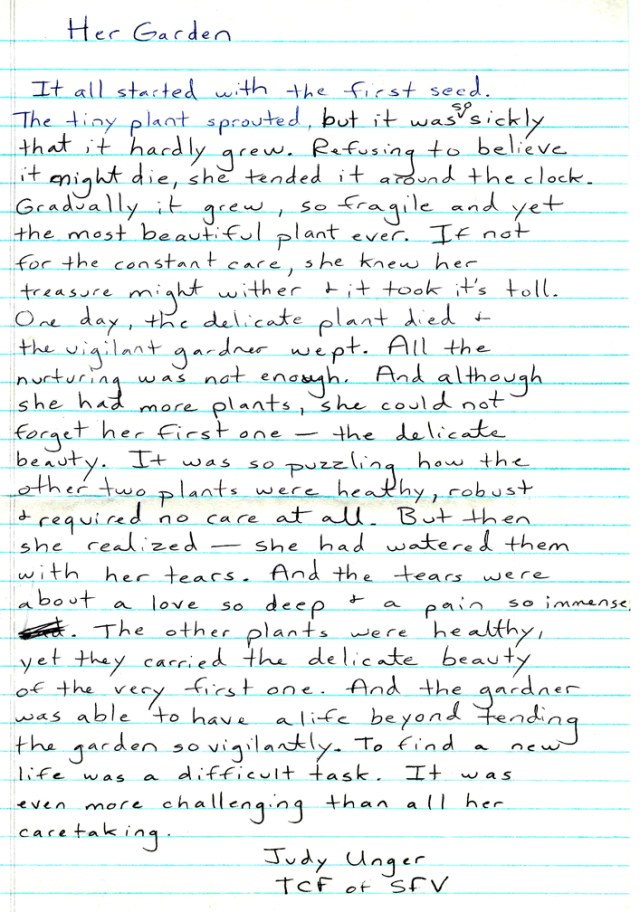 Her Garden
It all started with the first seed.
The tiny plant sprouted, but it was so sickly
that it hardly grew. Refusing to believe
it might die, she tended it around the clock.
Gradually it grew, so fragile and yet
the most beautiful plant ever. If not
for the constant care, she knew her
treasure might wither & it took it's toll.
One day, the delicate plant died &
the vigilant gardner wept. All the
nurturing was not enough. And although
she had more plants, she could not
forget her first one — the delicate
beauty. It was so puzzling how the
other two plants were heathy, robust
& required no care at all. But then
she realized — she had watered them
with her tears. And the tears were
about a love so deep & a pain so immense
. The other plants were healthy,
yet they carried the delicate beauty
of the very first one. And the gardner
was able to have a life beyond tending
the garden so vigilantly. To find a new
life was a difficult task. It was
even more challenging than all her
caretaking.
Judy Unger
TCF of SFV